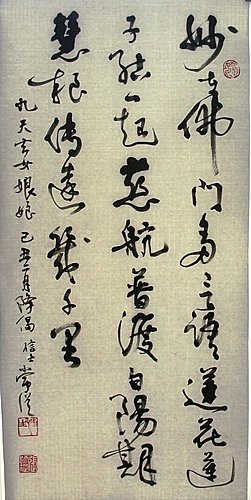 妙在佛門多言語蓮花蓮
子結一起慈航普渡白陽期
慧根傳達幾千里
九天玄女娘娘 己丑一月降筆 信士